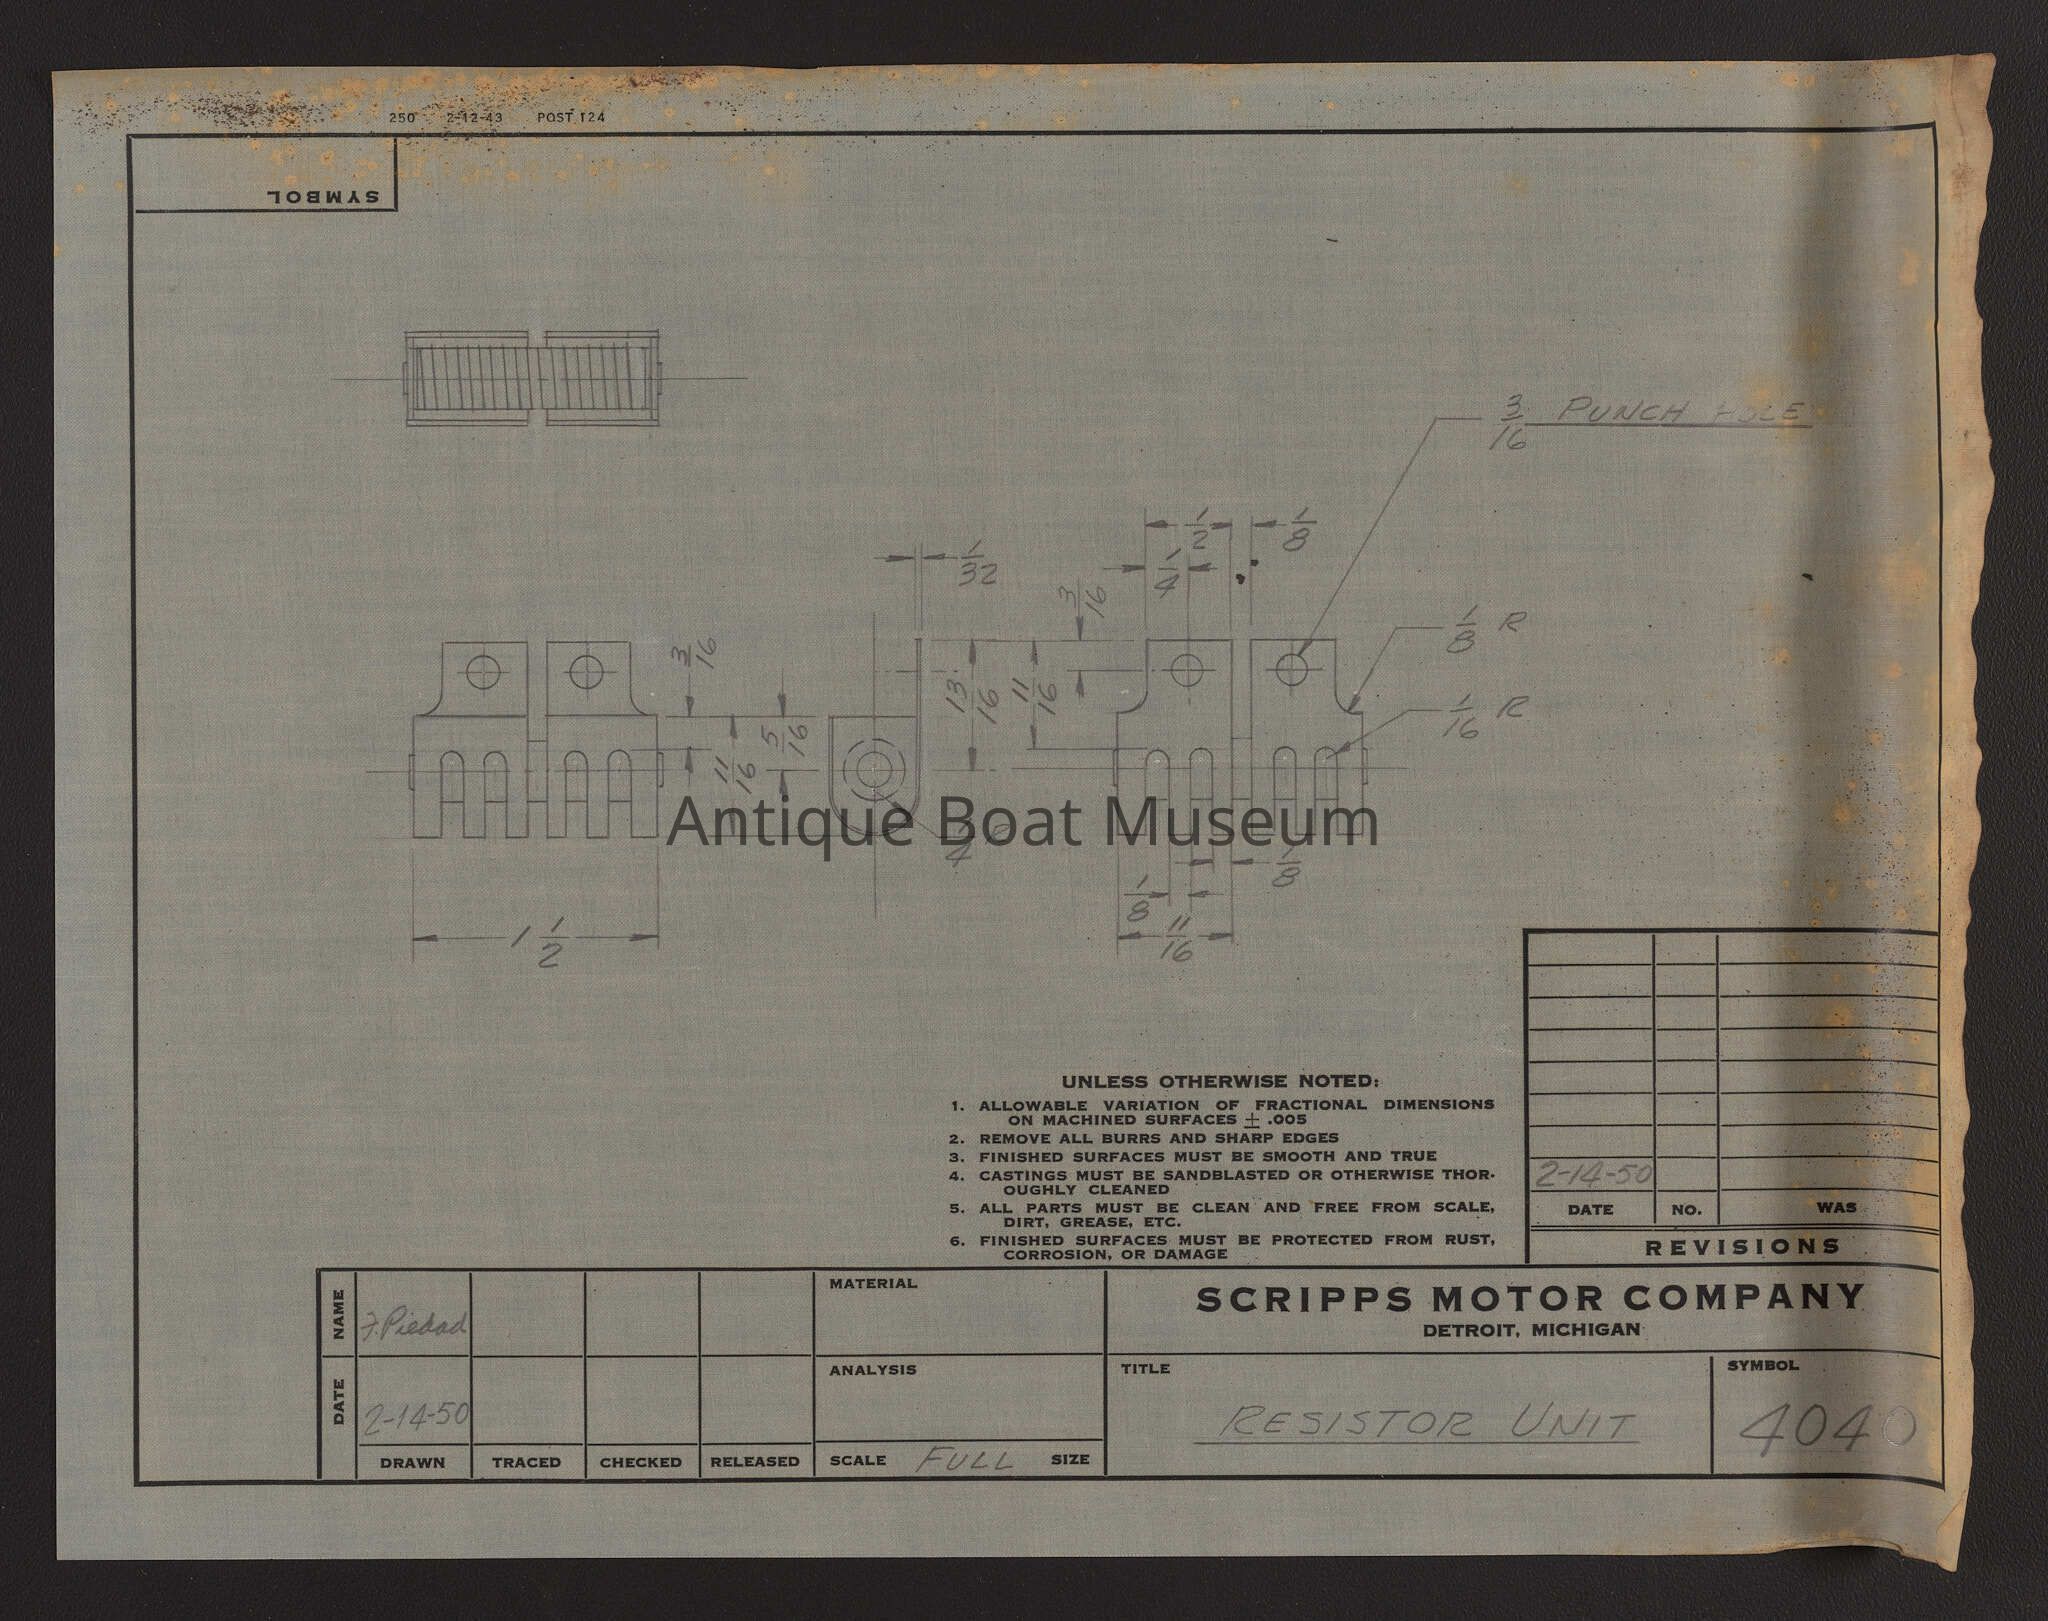 250 2-12-43 POST 124
SYMBOL
3/16 PUNCH HOLE
1/2
1/8
1/32
1/4
3/16
1/8 R
3/16
13/16
11/16
1/16 R
5/16
11/16
Antique Boat Museum
1/8
1/8
1 1/2
11/16
UNLESS OTHERWISE NOTED:
1. ALLOWABLE VARIATION OF FRACTIONAL DIMENSIONS
ON MACHINED SURFACES ± .005
2. REMOVE ALL BURRS AND SHARP EDGES
3. FINISHED SURFACES MUST BE SMOOTH AND TRUE
4. CASTINGS MUST BE SANDBLASTED OR OTHERWISE THOR-
OUGHLY CLEANED
5. ALL PARTS MUST BE CLEAN AND FREE FROM SCALE,
DIRT, GREASE, ETC.
6. FINISHED SURFACES MUST BE PROTECTED FROM RUST,
CORROSION, OR DAMAGE
2-14-50
DATE NO. WAS
REVISIONS
NAME F. Piedad
DATE 2-14-50
DRAWN TRACED CHECKED RELEASED
MATERIAL
ANALYSIS
SCALE FULL SIZE
SCRIPPS MOTOR COMPANY
DETROIT, MICHIGAN
TITLE
RESISTOR UNIT
SYMBOL
4040